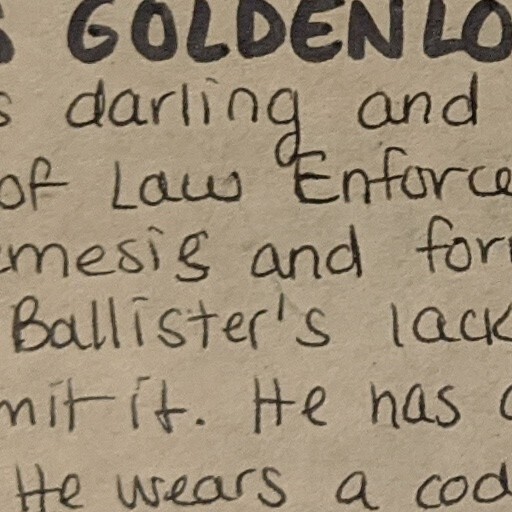 GOLDENLO
s darling and
of Law Enforce
mesis and for
Ballister's lack
mit it. He has
He wears a cod